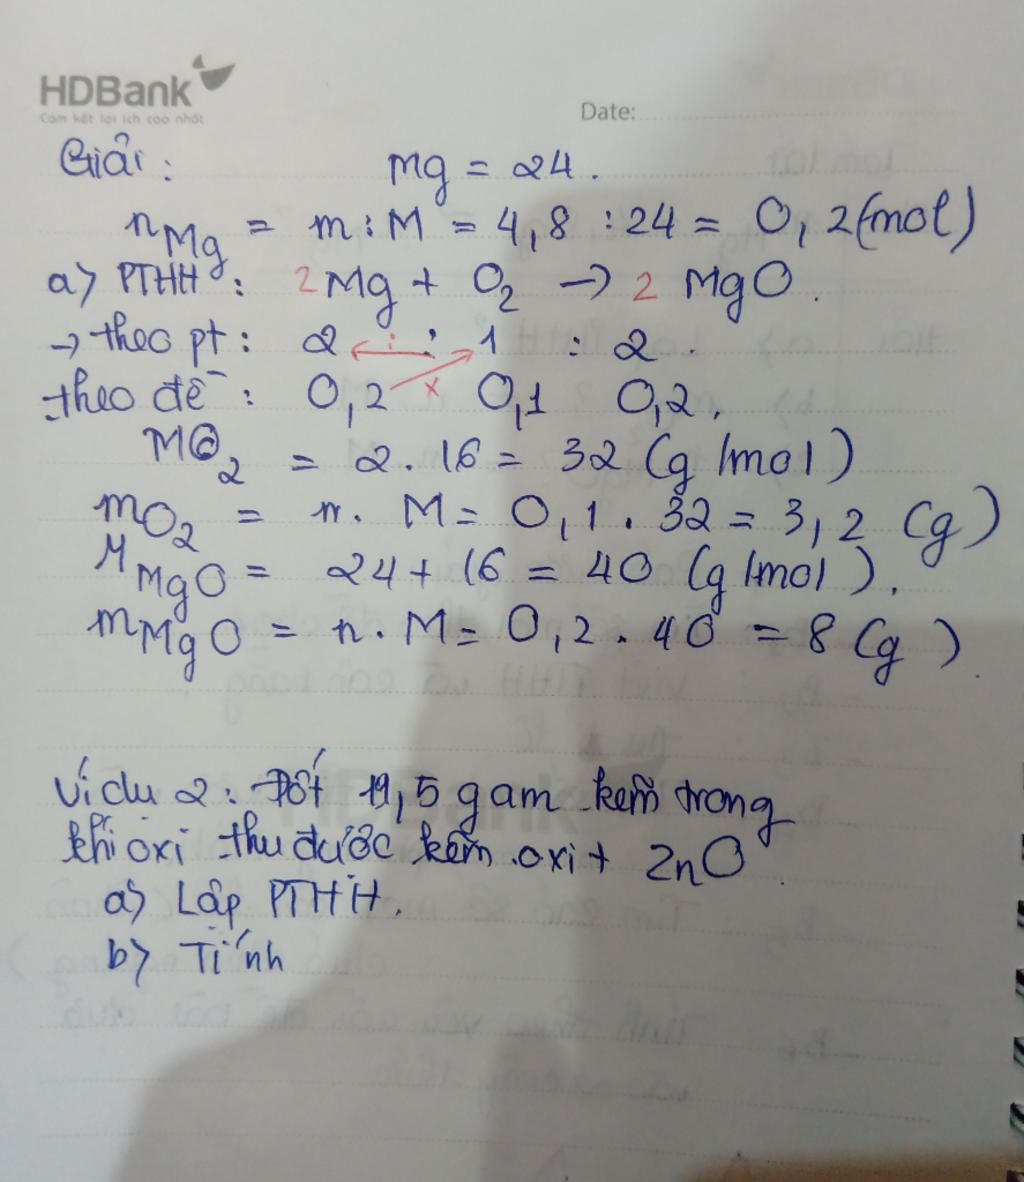 HDBank
Cam kết lợi ích cao nhất
Date:
Giải: Mg = 24.
nMg = m:M = 4,8 :24 = 0,2(mol)
a) PTHH: 2Mg + O2 → 2 MgO.
→ theo pt: 2 : 1 : 2
theo đề: 0,2 x 0,1 0,2.
MO2 = 2.16 = 32 (g/mol)
mO2 = n. M = 0,1 . 32 = 3,2 (g)
MMgO = 24+16 = 40 (g/mol).
mMgO = n. M = 0,2 . 40 = 8 (g)
Ví dụ 2: Đốt 19,5 gam kẽm trong
khí oxi thu được kẽm oxit ZnO.
a) Lập PTHH.
b) Tính